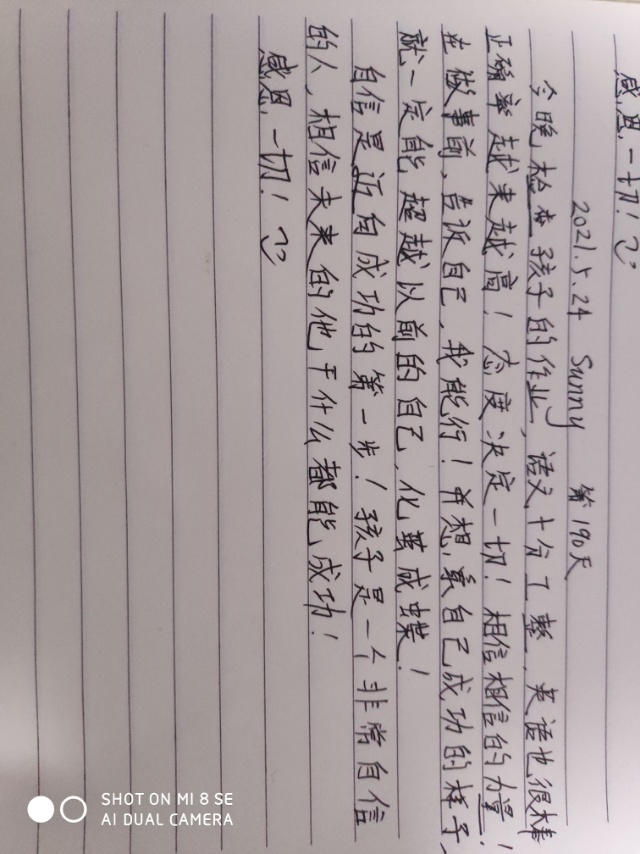 感恩一切！
2021.5.24 Sunny 第190天
今晚检查孩子的作业，语文十分工整，英语也很棒
正确率越来越高！态度决定一切！相信相信的力量！
在做事前，告诉自己，我能行！并想象自己成功的样子，
就一定能超越以前的自己，化茧成蝶！
自信是迈向成功的第一步！孩子是一个非常自信
的人，相信未来的他，干什么都能成功！
感恩一切！
SHOT ON MI 8 SE
AI DUAL CAMERA